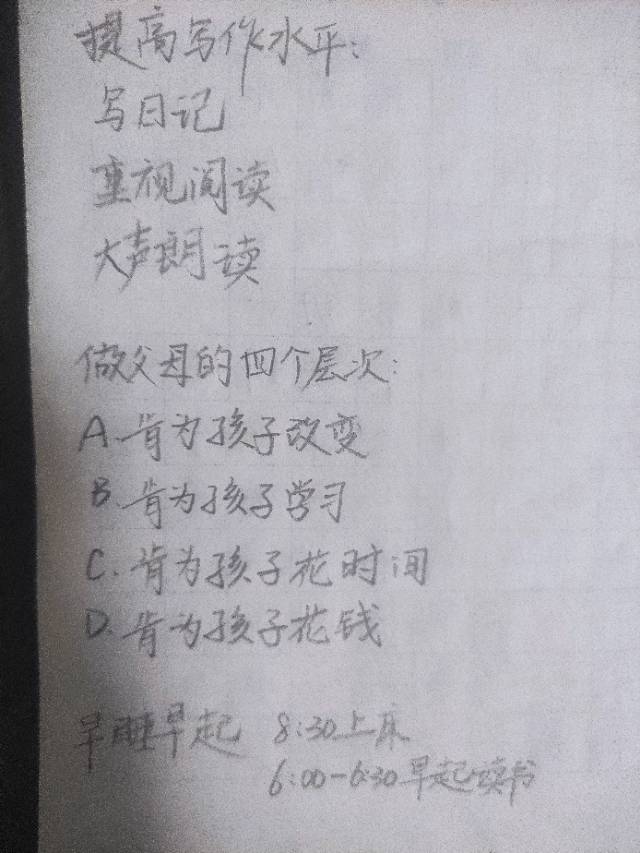 提高写作水平:
写日记
重视阅读
大声朗读
做父母的四个层次:
A.肯为孩子改变
B.肯为孩子学习
C.肯为孩子花时间
D.肯为孩子花钱
早睡早起 8:30上床
6:00-6:30早起读书